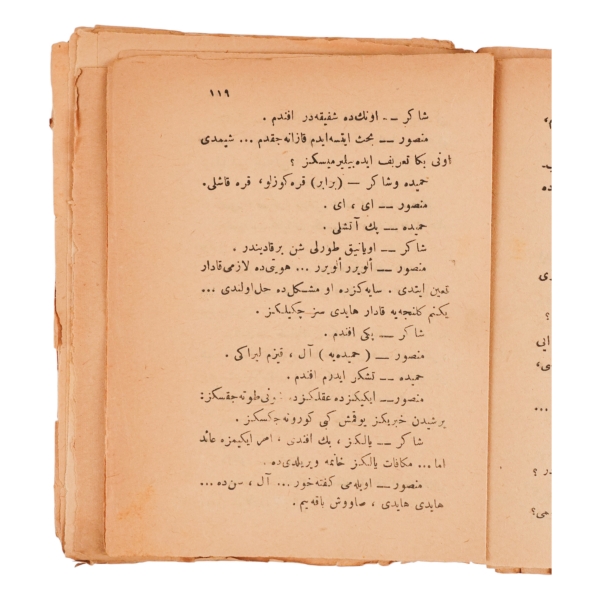 ١١٩
شاكر ــ اونك ده شفيقه در افندم .
منصور ــ بحث ايتسه ايدم قازانه جقدم ... شيمدى
اونى بكا تعريف ايده بيليرميسكز ؟
حميده وشاكر ــ (برابر) قره كوزلو، قره قاشلى.
منصور ــ اى ، اى .
حميده ــ پك آتشلى .
شاكر ــ اويانيق طورلى شن بر قاديندر .
منصور ــ ألويرر ألويرر ... هويتى ده لازمى قادار
تعين ايتدى . سايه كزده او مشكل ده حل اولندى ...
يكنم كلنجه يه قادار هايدى سز چكيلكز .
شاكر ــ پكى افندم .
منصور ــ ( حميده يه ) آل ، قيزم ليراكى .
حميده ــ تشكر ايدرم افندم .
منصور ــ ايكيكزده عقلكزده طوته جقسكز:
برشيدن خبريكز يوقمش كبى كورونه جكسكز .
شاكر ــ يالكز ، بك افندى ، امر ايكيمزه عائد
اما... مكافات يالكز خانمه ويريلدى ده .
منصور ــ اويله مى كفته خور ... آل ، سن ده ...
هايدى هايدى ، صاووش باقه يم .